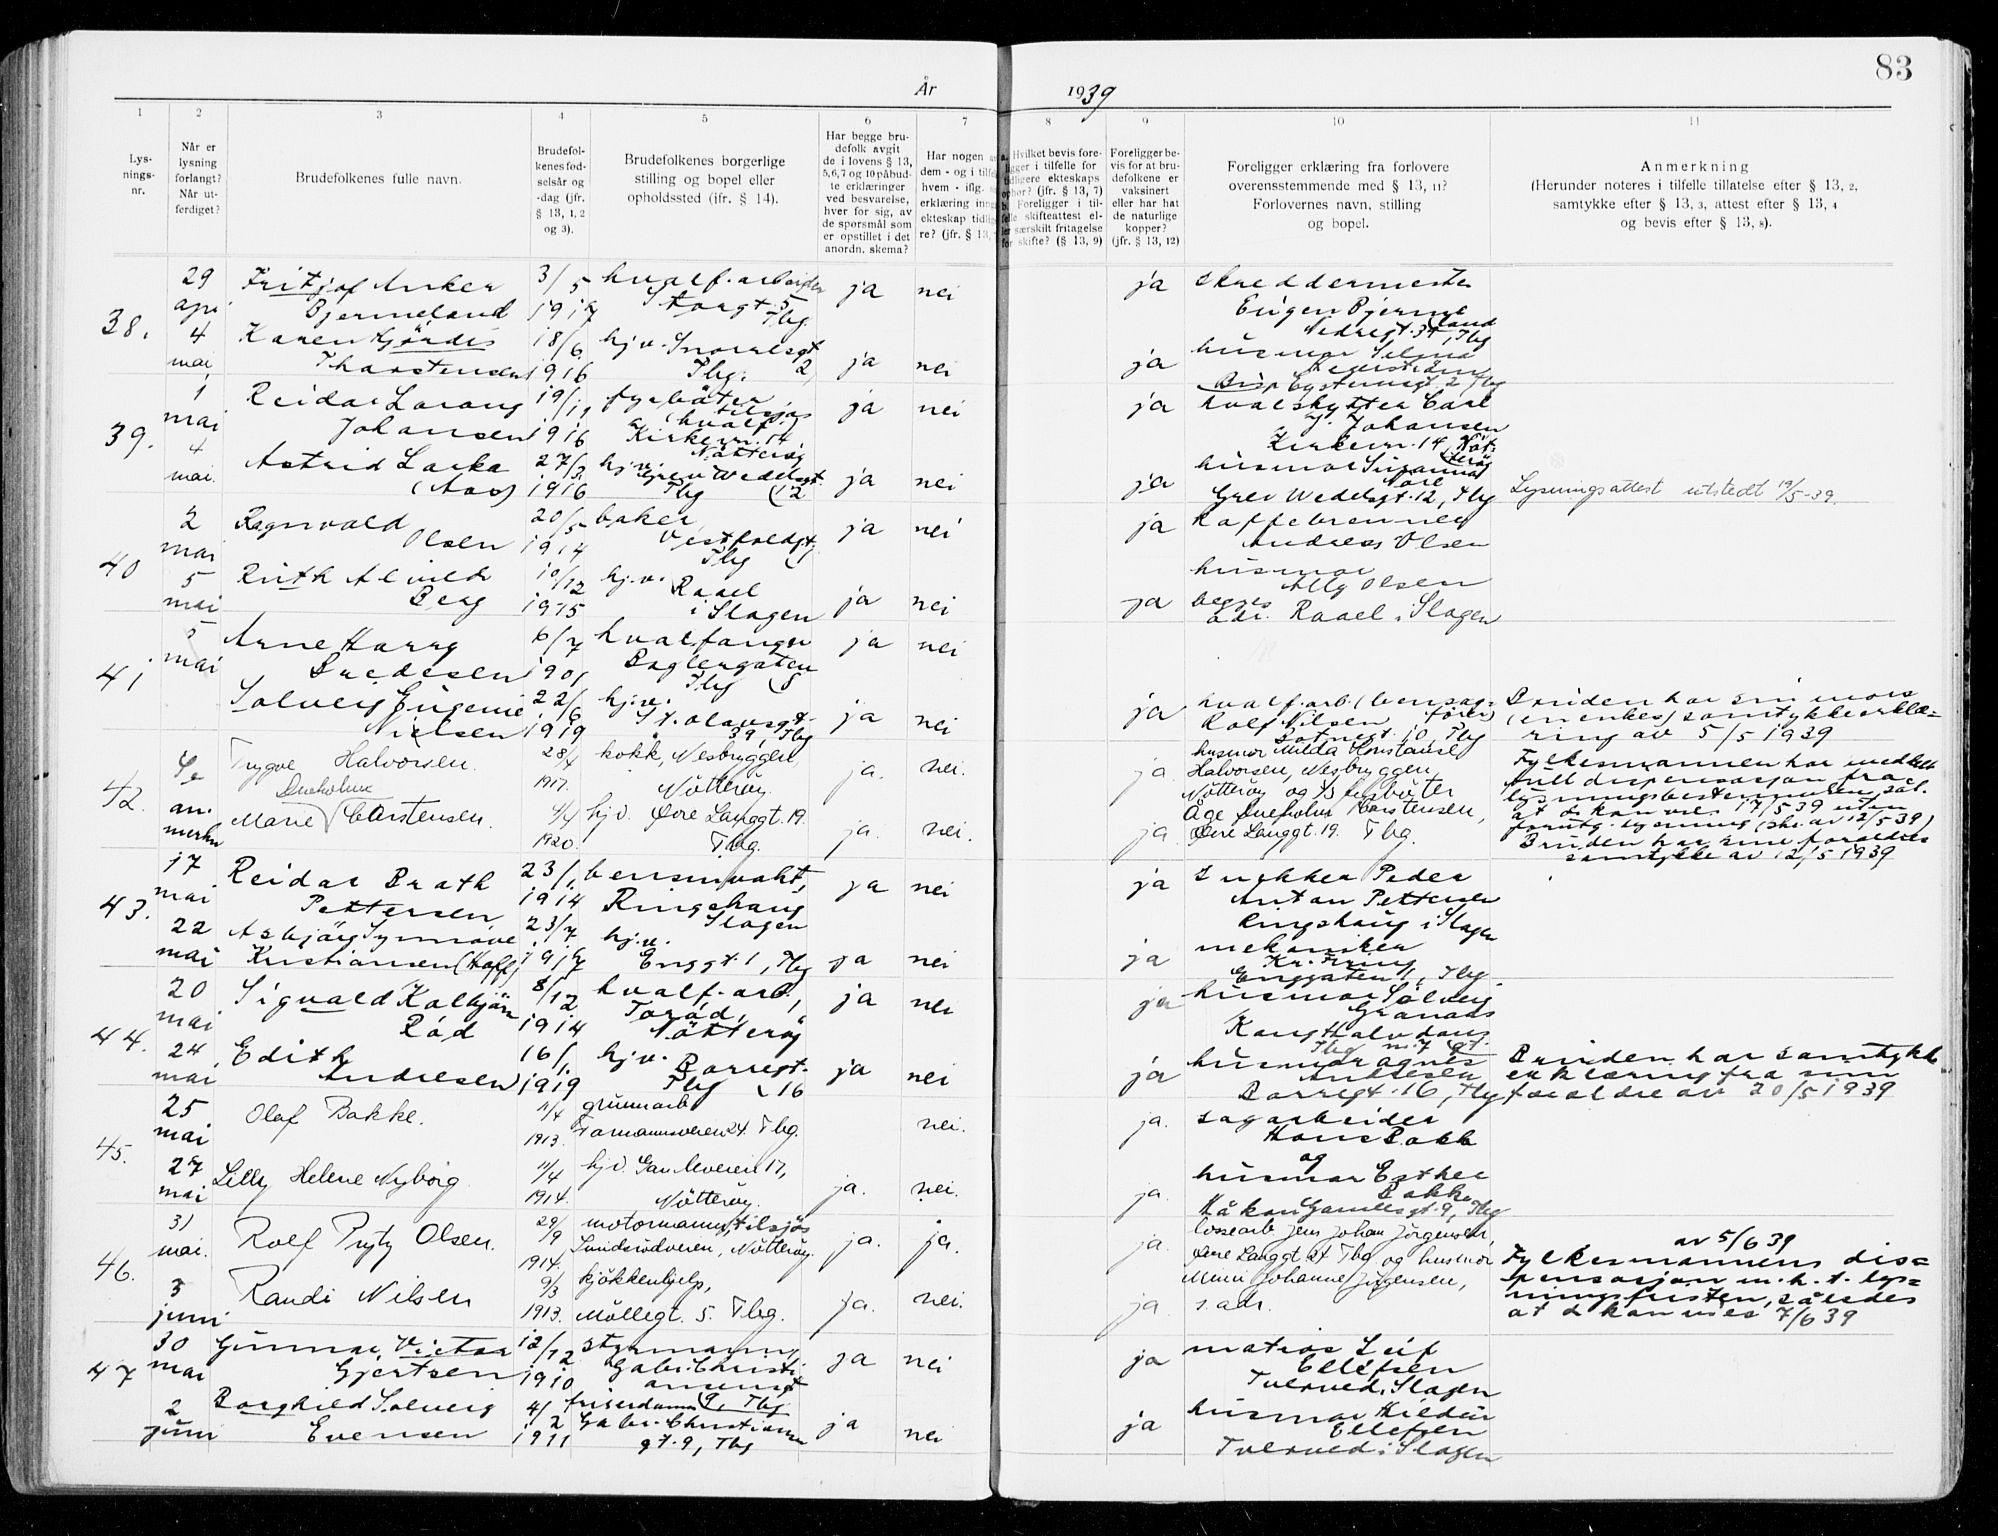 83
År 1939
1 2 3 4 5 6 7 8 9 10 11
Lys-
nings-
nr.
Når er
lysning
forlangt?
Når ut-
ferdiget?
Brudefolkenes fulle navn.
Brudefol-
kenes fød-
selsår og
-dag (jfr.
§ 13, 1, 2
og 3).
Brudefolkenes borgerlige
stilling og bopel eller
opholdssted (jfr. § 14).
Har begge bru-
defolk avgit
de i lovens § 13,
5, 6, 7 og 10 påbud-
te erklæringer
ved besvarelse,
hver for sig, av
de spørsmål som
er opstillet i det
anordn. skema?
Har nogen
dem - og i
hvem - iflg.
erklæring
ekteskap
re? (jfr. § 13,
a. Hvilket bevis fore-
ligger i tilfelle for
tidligere ekteskaps
ophør? (jfr. § 13, 7)
b. Foreligger i til-
felle skifteattest el-
ler særskilt fritagelse
for skifte? (§ 13, 9)
Foreligger be-
vis for at bru-
defolkene er
vaksinert
eller har hat
de naturlige
kopper?
(jfr. § 13, 12)
Foreligger erklæring fra forlovere
overensstemmende med § 13, 11?
Forlovernes navn, stilling
og bopel.
Anmerkning
(Herunder noteres i tilfelle tillatelse efter § 13, 2,
samtykke efter § 13, 3, attest efter § 13, 4
og bevis efter § 13, 8).
38.
29
apr
Fritjof Anker
Bjerneland
3/5
1917
hvalf.arbeider
Storgt. 5
Tbg
ja nei
ja
skreddermester
Eugen Bjerne
land
Nedregt. 34, Tbg
4
mai
Karen Gjördis
Thorstensen
18/6
1916
hj.v. Snorresgt
2,
Tbg.
ja nei
ja
husmor Selma
Bisp Eysteinsgt. 2 Tbg
39.
1
mai
Reidar Lorang
Johansen
19/11
1916
fyrböter
tilsjøs
(hvalf.)
Kirkevn. 14
Nötteröy
ja nei
ja
hvalskytter Carl
J. Johansen
Kirkevn. 14, Nöt-
teröy
4
mai.
Astrid Laska
(Aas)
27/3
1916
hj.v.
Grev Wedelsgt.
Tbg (12
ja nei
ja
husmor Susanna
Grev Wedelsgt. 12, Tbg
Lysningsattest utstedt 19/5-39.
40
2
mai
Ragnvald
Olsen
20/5
1914
baker
Vestfoldgt.
Tbg (1
ja nei
ja
kaffebrenner
Andreas Olsen
5
mai
Ruth Alvilde
Berg
10/12
1915
hj.v.
Raael
i Slagen
ja nei
ja
husmor
Ally Olsen
begges
adr. Raael i Slagen
41
5
mai
Arne Harry
Bredesen
6/7
1901
hvalfanger
Baglergaten
Tbg (8
ja nei
Solveig Eugenie
Nielsen
22/6
1919
hj.v.
St. Olavsgt.
39, Tbg
ja nei
ja
hvalf.arb.
Rolf Nilsen
10, Tbg
Bruden har sin mors
(en enkes) samtykkeerklæ-
ring av 5/5 1939
42.
Se
an-
merkn
Trygve Halvorsen.
28/4
1917.
kokk, Nesbryggen,
Nötteröy.
ja. nei.
ja
husmor Milda Konstanse
Halvorsen, Nesbryggen
Nötteröy og fyrböter
Dueholm
Marie Carstensen.
4/4
1920.
hj.v. Øvre Langgt. 19.
Tbg.
ja. nei.
ja.
Åge Dueholm Carstensen,
Øvre Langgt. 19. Tbg.
Fylkesmannen har meddelt
full dispensasjon fra
lysningsbestemmelsen, såt.
at d. kan vies 17/5 39 uten
forutg. lysning (skr. av 12/5 39)
Bruden har sine foreldres
samtykke av 12/5 1939
43.
17
mai
Reidar Brath
Pettersen
23/1
1914
bensinvakt,
Ringshaug
Slagen
ja nei
ja
snekker Peder
Anton Pettersen
Ringshaug i Slagen
22
mai
Asbjörg Synnöve
Kristiansen (Hoff)
23/7
1917
hj.v.
Enggt. 1, Tbg
ja nei
ja
mekaniker
Enggaten 1, Tbg.
44.
20
mai
Sigvald Kolbjörn
Röd
8/12
1914
hvalf.arb.
Toröd,
Nötteröy
ja nei
ja
husmor Solveig
Granaas
Kong Halvdans
gt.
Tbg
24
mai
Edith
Andresen
16/1
1919
hj.v.
Borregt.
Tbg (16
ja nei
ja
husmor Agnes
Andresen
Borregt. 16, Tbg
Bruden har samtykke
erklæring fra sine
foreldre av 20/5 1939
45.
25
mai
Olaf Bakke.
11/4
1913.
grunnarb
Formannsveien 24. Tbg.
nei.
ja.
sagarbeider
Hans Bakke
og
27
mai
Lilly Helene Nyborg
11/4
1914.
hj.v. Gauleveien 17,
Nötteröy.
ja. nei.
ja.
husmor Esther
Bakke
Håkon Gamlesgt. 9, Tbg
46.
31
mai.
Rolf Pryty Olsen.
29/9
1914.
motormann tilsjøs
Smidsrödveien, Nötteröy.
ja. ja.
ja.
lossearb Jens Johan Jörgensen,
Øvre Langgt 24 Tbg og husmor
3
juni
Randi Nilsen
9/3
1913.
kjökkenhjelp,
Möllegt. 5. Tbg.
ja. nei.
ja
Mimi Johanne Jörgensen,
s. adr.
av 5/6 39
Fylkesmannens dis-
pensasjon m.h.t. lys-
ningsfristen, således
at d kan vies 7/6 39
47
30
mai
Gunnar Victor
Gjertsen
12/12
1910
styrmann
Gabr. Christi
ansensgt
9, Tbg
ja nei
ja
matros Leif
Ellefsen
Tverved i Slagen
2
juni
Borghild Solveig
Evensen
4/12
1911
friserdame
Gabr. Christianse
gt. 9, Tbg
ja nei
ja
husmor Hildur
Ellefsen
Tverved i Slagen